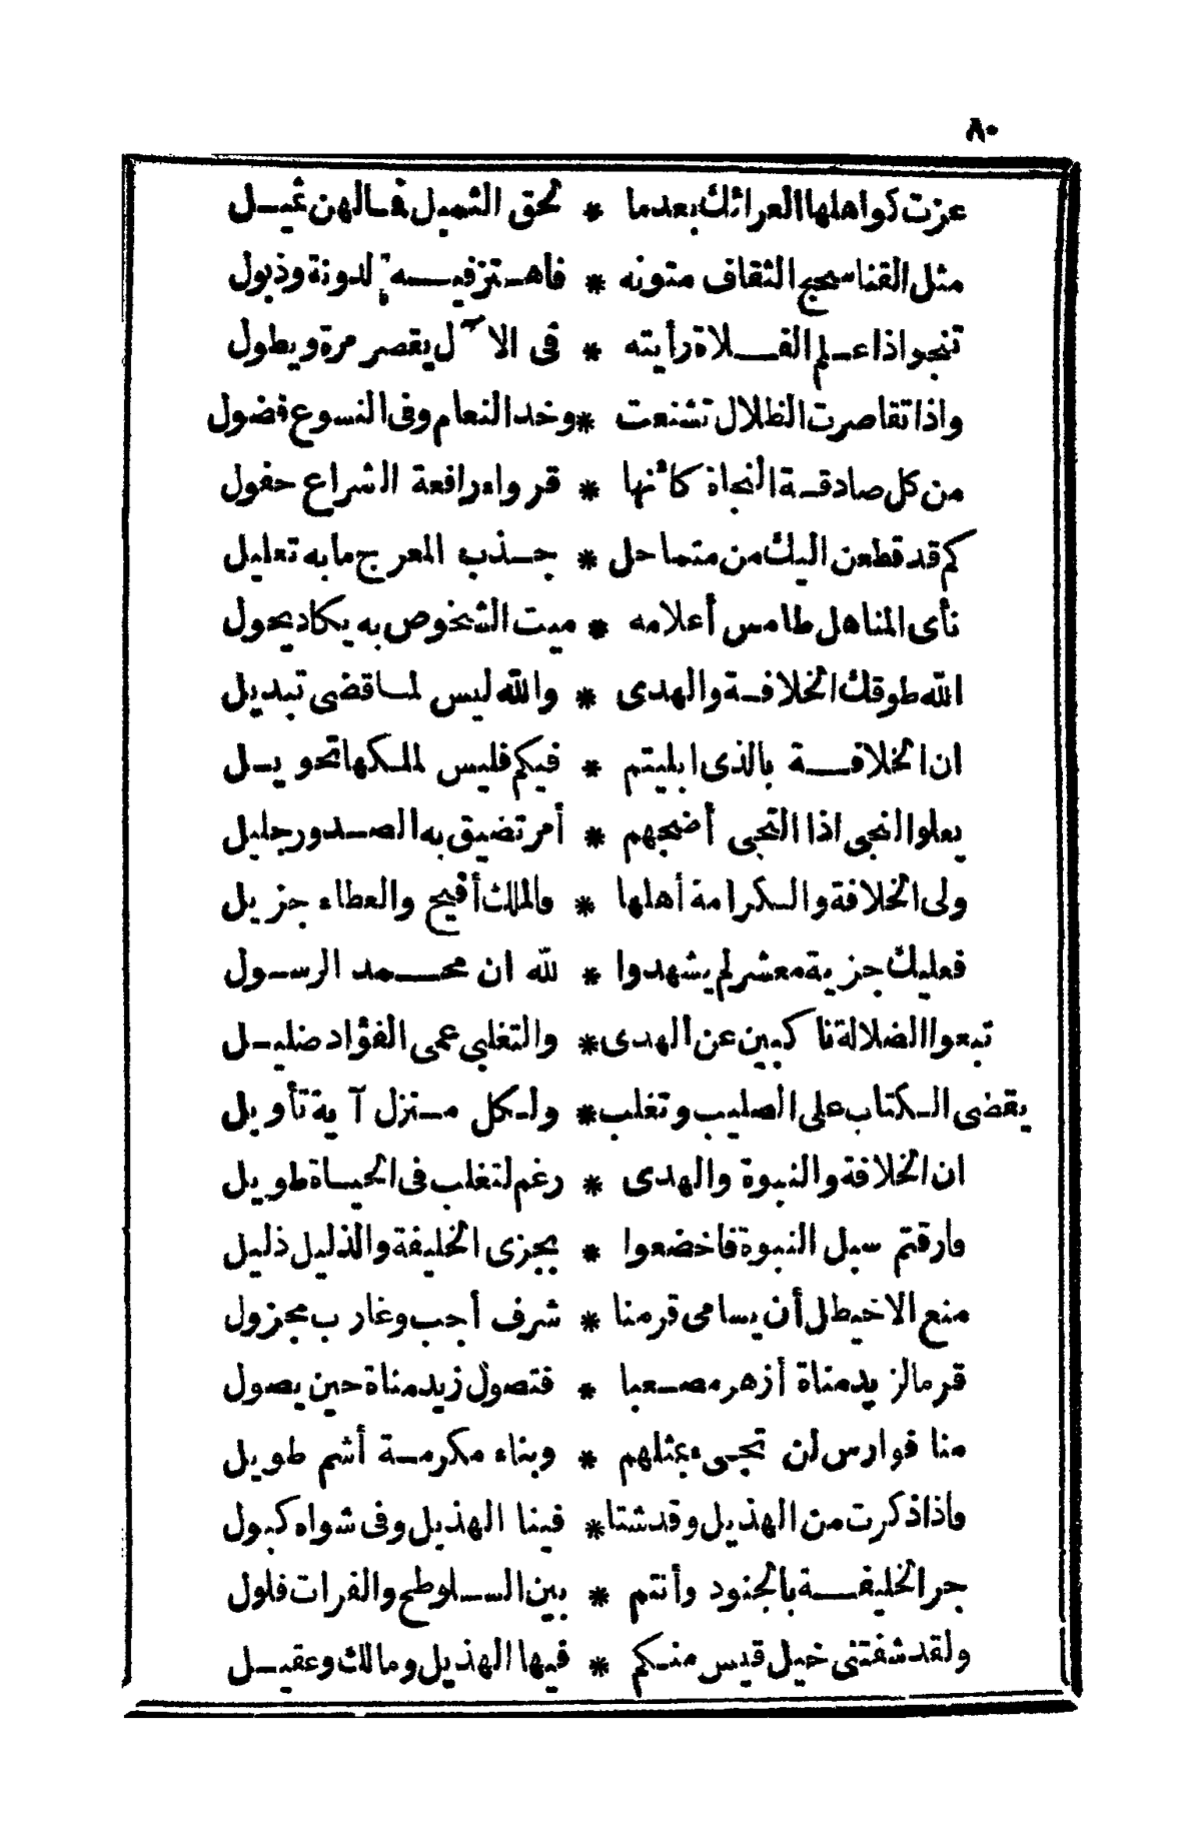 ٨٠
عزت كواهلها العرائك بعدما * لحق الثميل فمالهن ثميل
مثل القنا سحج الثقاف متونه * فاهتز فيه لدونة وذبول
تنجو اذا علم الفلاة رأيته * فى الآل يقصر مرة ويطول
واذا تقاصرت الظلال تشنعت * وخد النعام وفى النسوع فضول
من كل صادقة النجاة كأنها * قرواء رافعة الشراع جفول
كم قد قطعن اليك من متماحل * جذب المعرج ما به تعليل
نأى المناهل طامس أعلامه * ميت الشخوص به يكاد يحول
الله طوقك الخلافة والهدى * والله ليس لما قضى تبديل
ان الخلافة بالذى ابليتم * فيكم فليس لملكها تحويل
يعلو النجى اذا النجى أضجهم * أمر تضيق به الصدور جليل
ولى الخلافة والكرامة أهلها * فالملك أفيح والعطاء جزيل
فعليك جزية معشر لم يشهدوا * لله ان محمد الرسول
تبعوا الضلالة ناكبين عن الهدى * والتغلبى عمى الفؤاد ضليل
يقضى الكتاب على الصليب وتغلب * ولكل منزل آية تأويل
ان الخلافة والنبوة والهدى * رغم لتغلب فى الحياة طويل
فارقتم سبل النبوة فاخضعوا * بجزى الخليفة والذليل ذليل
منع الاخيطل أن يسامى قرمنا * شرف أجب وغارب مجزول
قرمالزيد مناة أزهر مصعبا * فتصول زيد مناة حين يصول
منا فوارس لن تجىء بمثلهم * وبناء مكرمة أشم طويل
فاذا ذكرت من الهذيل وقد شتا * فينا الهذيل وفى شواه كبول
جر الخليفة بالجنود وأنتم * بين السلوطح والفرات فلول
ولقد شفتنى خيل قيس منكم * فيها الهذيل ومالك وعقيل